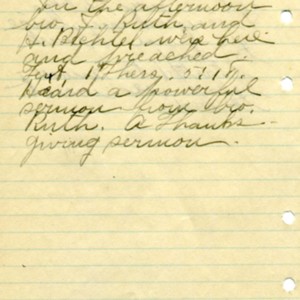 In the afternoon
bro. J. Ruth and
H. Biehler was here
and preached.
Text, 1 Thess. 5:17.
Heard a powerful
sermon from bro.
Ruth. A Thanks-
giving sermon.